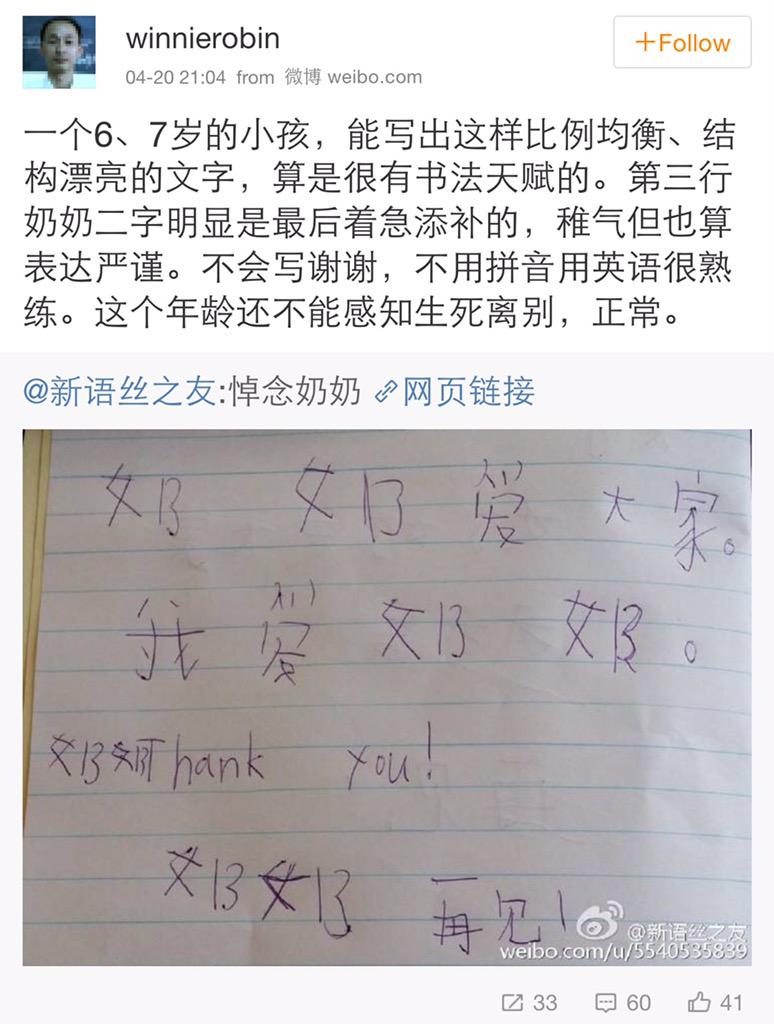 winnierobin
+Follow
04-20 21:04 from 微博 weibo.com
一个6、7岁的小孩，能写出这样比例均衡、结
构漂亮的文字，算是很有书法天赋的。第三行
奶奶二字明显是最后着急添补的，稚气但也算
表达严谨。不会写谢谢，不用拼音用英语很熟
练。这个年龄还不能感知生死离别，正常。
@新语丝之友:悼念奶奶 网页链接
奶 奶 爱 大 家。
我 爱 奶 奶。
奶奶Thank you!
奶奶 再见!
@新语丝之友
weibo.com/u/5540535839
33 60 41